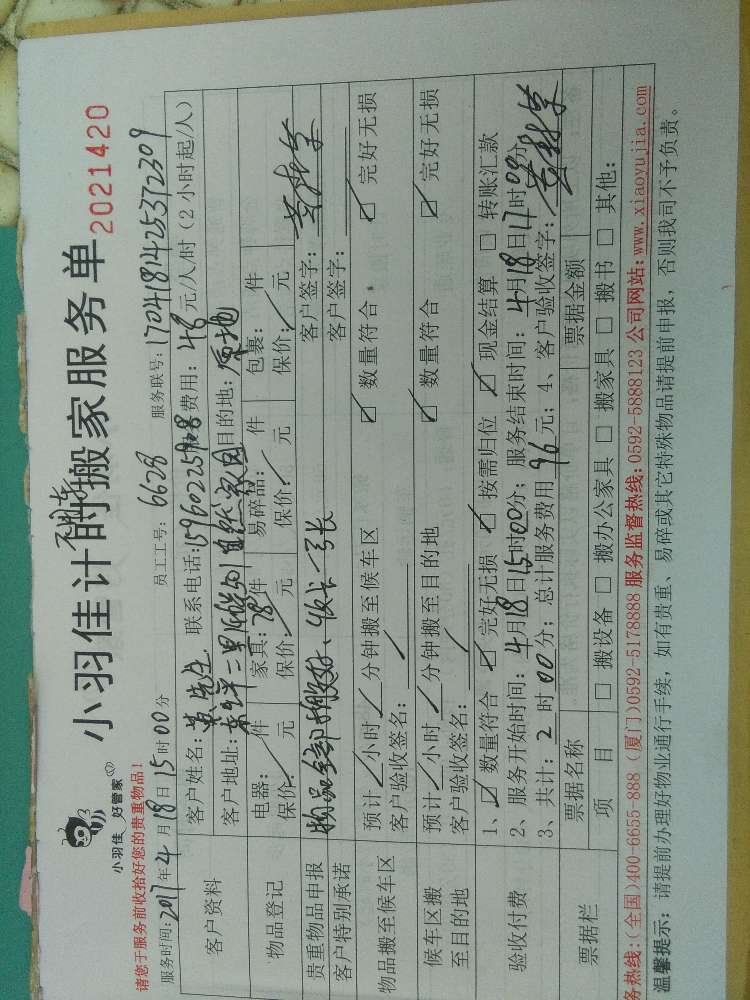 小羽佳 好管家
小羽佳计时搬家服务单
2021420
请您于服务前收拾好您的贵重物品!
服务时间: 2017年4月18日15时00分 员工工号: 6628 服务联号: 1704181425372309
客户资料
客户姓名: 黄先生 联系电话: 15960225908 费用: 48元/人/时(2小时起/人)
客户地址: 目的地: 原地
物品登记
电器: 件 家具: 78件 易碎品: 件 包裹: 件
保价: 元 保价: 元 保价: 元 保价: 元
贵重物品申报
客户特别承诺
物品全部搬好、
客户签字:
客户签字:
物品搬至候车区
预计 小时 分钟搬至候车区 ☑ 数量符合 ☑ 完好无损
客户验收签名:
候车区搬
至目的地
预计 小时 分钟搬至目的地 ☑ 数量符合 ☑ 完好无损
客户验收签名:
验收付费
1、☑ 数量符合 ☑ 完好无损 ☑ 按需归位 ☑ 现金结算 □ 转账汇款
2、服务开始时间: 4月18日15时00分; 服务结束时间: 4月18日17时00分
3、共计: 2时00分; 总计服务费用 96元; 4、客户验收签字:
票据栏
票据名称 票据金额
项 目 □ 搬设备 □ 搬办公家具 □ 搬家具 □ 搬书 □ 其他:
务热线:(全国)400-6655-888 (厦门)0592-5178888 服务监督热线:0592-5888123 公司网站:www.xiaoyujia.com
温馨提示: 请提前办理好物业通行手续, 如有贵重、易碎或其它特殊物品请提前申报, 否则我司不予负责。